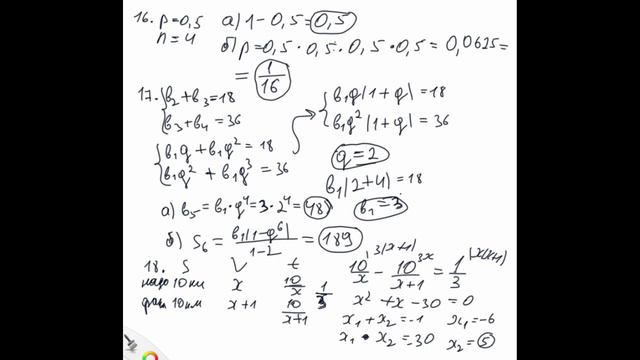 16. p=0,5 a) 1-0,5=0,5
n=4 б) p=0,5·0,5·0,5·0,5=0,0625=
=1/16
17. {b₂+b₃=18
b₃+b₄=36
{b₁q+b₁q²=18
b₁q²+b₁q³=36
{b₁q(1+q)=18
b₁q²(1+q)=36
q=2
b₁(2+4)=18
b₁=3
а) b₅=b₁·q⁴=3·2⁴=48
б) S₆=b₁(1-q⁶)/1-2=189
18. S V t
надо 10 км x 10/x 1/3
факт 10 км x+1 10/x+1
10/x - 10/x+1 = 1/3
3(x+1) 3x x(x+1)
x²+x-30=0
x₁+x₂=-1 x₁=-6
x₁·x₂=-30 x₂=5